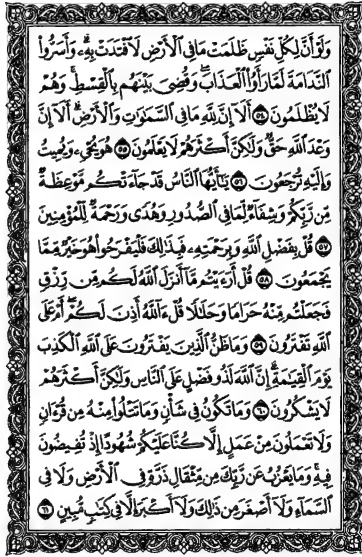 وَلَوْ أَنَّ لِكُلِّ نَفْسٍ ظَلَمَتْ مَا فِي ٱلْأَرْضِ لَٱفْتَدَتْ بِهِۦ وَأَسَرُّوا۟
ٱلنَّدَامَةَ لَمَّا رَأَوُا۟ ٱلْعَذَابَ وَقُضِيَ بَيْنَهُم بِٱلْقِسْطِ وَهُمْ
لَا يُظْلَمُونَ ٥٤ أَلَآ إِنَّ لِلَّهِ مَا فِي ٱلسَّمَٰوَٰتِ وَٱلْأَرْضِ أَلَآ إِنَّ
وَعْدَ ٱللَّهِ حَقٌّ وَلَٰكِنَّ أَكْثَرَهُمْ لَا يَعْلَمُونَ ٥٥ هُوَ يُحْيِۦ وَيُمِيتُ
وَإِلَيْهِ تُرْجَعُونَ ٥٦ يَٰٓأَيُّهَا ٱلنَّاسُ قَدْ جَآءَتْكُم مَّوْعِظَةٌ
مِّن رَّبِّكُمْ وَشِفَآءٌ لِّمَا فِي ٱلصُّدُورِ وَهُدًى وَرَحْمَةٌ لِّلْمُؤْمِنِينَ
٥٧ قُلْ بِفَضْلِ ٱللَّهِ وَبِرَحْمَتِهِۦ فَبِذَٰلِكَ فَلْيَفْرَحُوا۟ هُوَ خَيْرٌ مِّمَّا
يَجْمَعُونَ ٥٨ قُلْ أَرَءَيْتُم مَّآ أَنزَلَ ٱللَّهُ لَكُم مِّن رِّزْقٍ
فَجَعَلْتُم مِّنْهُ حَرَامًا وَحَلَٰلًا قُلْ ءَآللَّهُ أَذِنَ لَكُمْ أَمْ عَلَى
ٱللَّهِ تَفْتَرُونَ ٥٩ وَمَا ظَنُّ ٱلَّذِينَ يَفْتَرُونَ عَلَى ٱللَّهِ ٱلْكَذِبَ
يَوْمَ ٱلْقِيَٰمَةِ إِنَّ ٱللَّهَ لَذُو فَضْلٍ عَلَى ٱلنَّاسِ وَلَٰكِنَّ أَكْثَرَهُمْ
لَا يَشْكُرُونَ ٦٠ وَمَا تَكُونُ فِي شَأْنٍ وَمَا تَتْلُوا۟ مِنْهُ مِن قُرْءَانٍ
وَلَا تَعْمَلُونَ مِنْ عَمَلٍ إِلَّا كُنَّا عَلَيْكُمْ شُهُودًا إِذْ تُفِيضُونَ
فِيهِ وَمَا يَعْزُبُ عَن رَّبِّكَ مِن مِّثْقَالِ ذَرَّةٍ فِي ٱلْأَرْضِ وَلَا فِي
ٱلسَّمَآءِ وَلَآ أَصْغَرَ مِن ذَٰلِكَ وَلَآ أَكْبَرَ إِلَّا فِي كِتَٰبٍ مُّبِينٍ ٦١